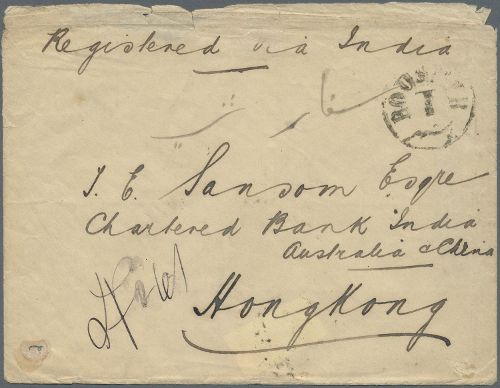 Registered via India
J. E. Sansom Esqre
Chartered Bank India
Australia & China
HongKong